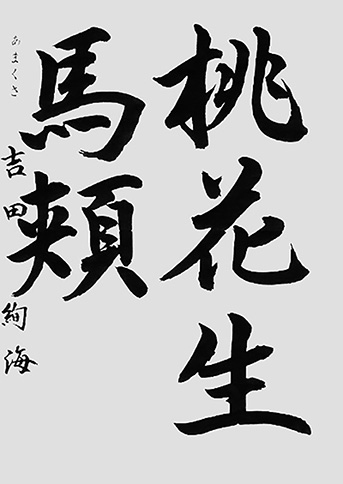 桃花生
馬頬
あまくさ
吉田絢海